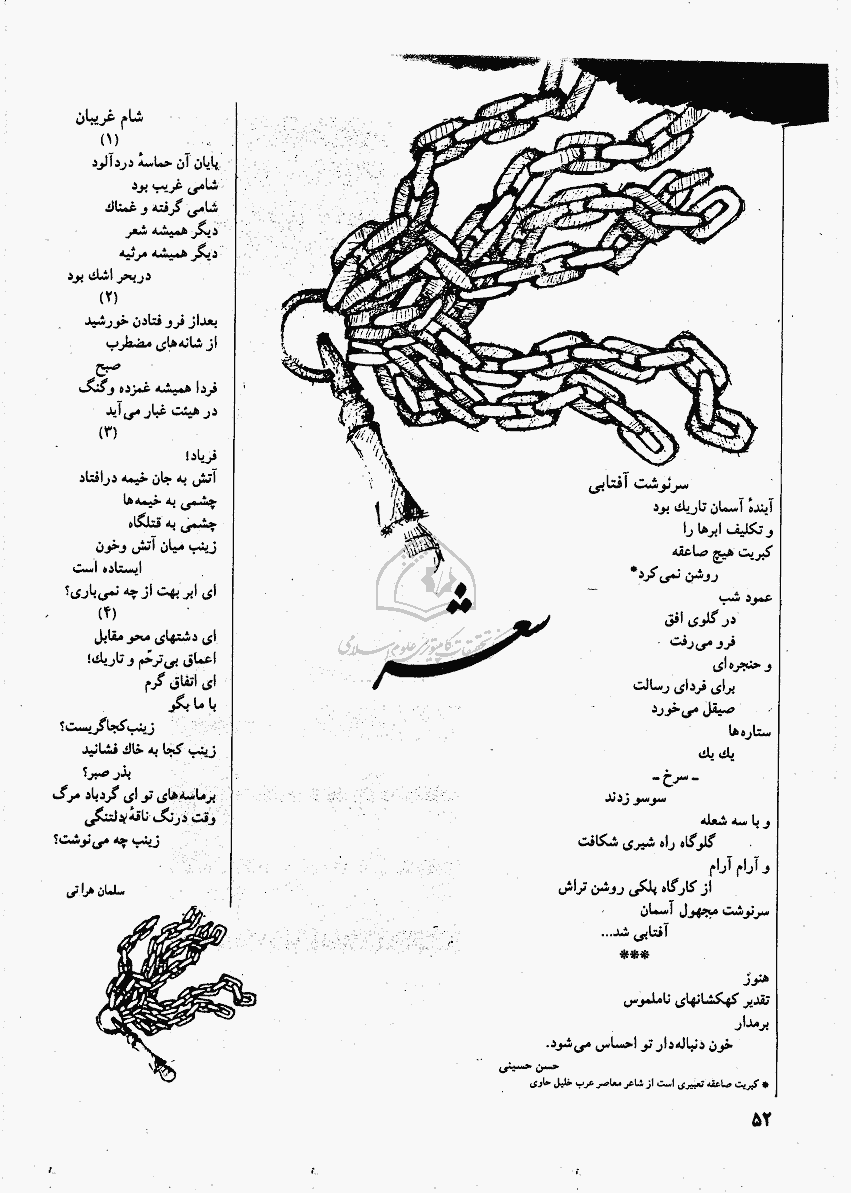 سرنوشت آفتابی
آیندهٔ آسمان تاریك بود
و تکلیف ابرها را
کبریت هیچ صاعقه
روشن نمی‌کرد*
عمود شب
در گلوی افق
فرو می‌رفت
و حنجره‌ای
برای فردای رسالت
صیقل می‌خورد
ستاره‌ها
یك یك
ـ سرخ ـ
سوسو زدند
و با سه شعله
گلوگاه راه شیری شکافت
و آرام آرام
از کارگاه پلکی روشن تراش
سرنوشت مجهول آسمان
آفتابی شد...
***
هنوز
تقدیر کهکشانهای ناملموس
برمدار
خون دنباله‌دار تو احساس می‌شود.
حسن حسینی
* کبریت صاعقه تعبیری است از شاعر معاصر عرب خلیل حاوی
شعر
شام غریبان
(۱)
پایان آن حماسهٔ دردآلود
شامی غریب بود
شامی گرفته و غمناك
دیگر همیشه شعر
دیگر همیشه مرثیه
دربحر اشك بود
(۲)
بعداز فرو فتادن خورشید
از شانه‌های مضطرب
صبح
فردا همیشه غمزده وگنگ
در هیئت غبار می‌آید
(۳)
فریاد!
آتش به جان خیمه درافتاد
چشمی به خیمه‌ها
چشمی به قتلگاه
زینب میان آتش وخون
ایستاده است
ای ابر بهت از چه نمی‌باری؟
(۴)
ای دشتهای محو مقابل
اعماق بی‌ترحّم و تاریك!
ای اتفاق گرم
با ما بگو
زینب‌کجاگریست؟
زینب کجا به خاك فشانید
بذر صبر؟
برماسه‌های تو ای گردباد مرگ
وقت درنگ ناقهٔ دلتنگی
زینب چه می‌نوشت؟
سلمان هراتی
۵۲